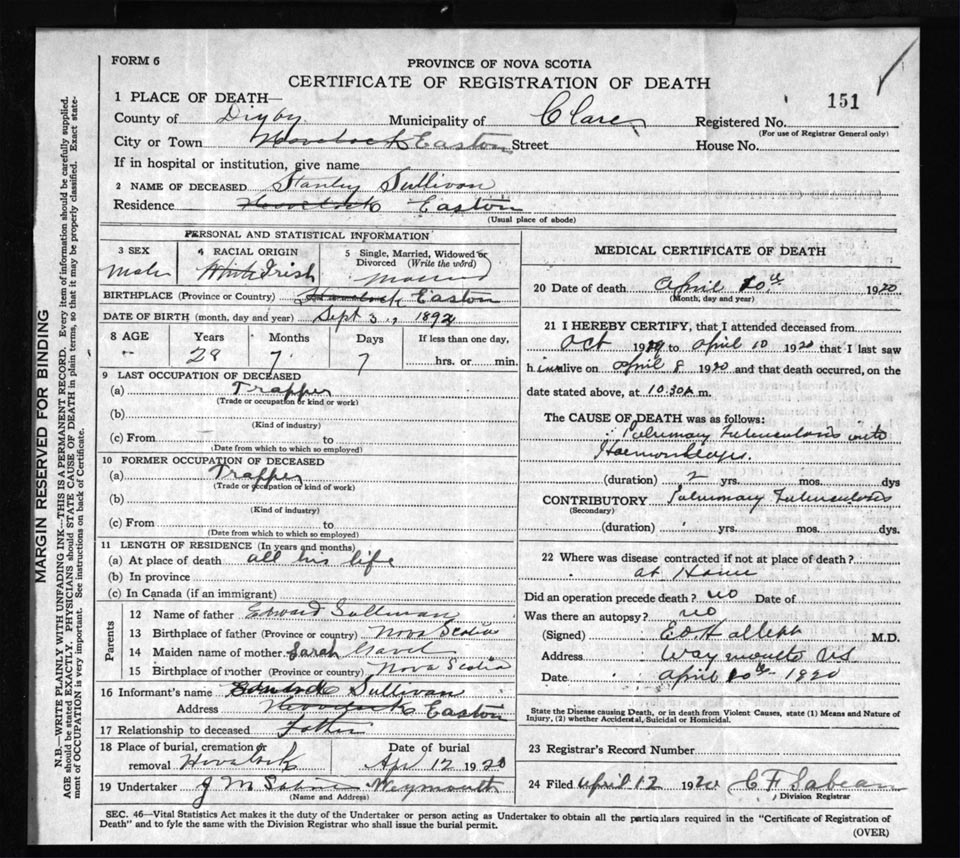 FORM 6
PROVINCE OF NOVA SCOTIA
CERTIFICATE OF REGISTRATION OF DEATH
151
1 PLACE OF DEATH—
County of Digby Municipality of Clare Registered No.
(For use of Registrar General only)
City or Town Easton Street House No.
If in hospital or institution, give name
2 NAME OF DECEASED Stanley Sullivan
Residence Easton
(Usual place of abode)
PERSONAL AND STATISTICAL INFORMATION
3 SEX 4 RACIAL ORIGIN 5 Single, Married, Widowed or Divorced (Write the word)
Male Irish
BIRTHPLACE (Province or Country) Easton
DATE OF BIRTH (month, day and year) Sept 3, 1892
8 AGE Years Months Days If less than one day,
28 7 7 hrs. or min.
9 LAST OCCUPATION OF DECEASED
(a) Trapper
(Trade or occupation or kind or work)
(b)
(Kind of industry)
(c) From to
(Date from which to which so employed)
10 FORMER OCCUPATION OF DECEASED
(a) Trapper
(Trade or occupation or kind of work)
(b)
(Kind of industry)
(c) From to
(Date from which to which so employed)
11 LENGTH OF RESIDENCE (In years and months)
(a) At place of death all his life
(b) In province
(c) In Canada (if an immigrant)
Parents
12 Name of father Edward Sullivan
13 Birthplace of father (Province or country) Nova Scotia
14 Maiden name of mother Sarah
15 Birthplace of mother (Province or country) Nova Scotia
16 Informant's name Sullivan
Address Easton
17 Relationship to deceased Father
18 Place of burial, cremation or removal Havelock Date of burial Apr 12 1920
19 Undertaker J M Weymouth
(Name and Address)
MEDICAL CERTIFICATE OF DEATH
20 Date of death April 10th 1920
(Month, day and year)
21 I HEREBY CERTIFY, that I attended deceased from
Oct 1919 to April 10 1920 that I last saw
h im alive on April 8 1920 and that death occurred, on the
date stated above, at 10.30 A m.
The CAUSE OF DEATH was as follows:
Pulmonary Tuberculosis with
Haemorrhages.
(duration) 2 yrs. mos. dys
CONTRIBUTORY Pulmonary Tuberculosis
(Secondary)
(duration) yrs. mos. dys.
22 Where was disease contracted if not at place of death?
at Home
Did an operation precede death? no Date of
Was there an autopsy? no
(Signed) M.D.
Address Weymouth NS
Date April 10th 1920
State the Disease causing Death, or in death from Violent Causes, state (1) Means and Nature of
Injury, (2) whether Accidental, Suicidal or Homicidal.
23 Registrar's Record Number
24 Filed April 12 1920 C F Sabean
Division Registrar
SEC. 46—Vital Statistics Act makes it the duty of the Undertaker or person acting as Undertaker to obtain all the particulars required in the "Certificate of Registration of
Death" and to fyle the same with the Division Registrar who shall issue the burial permit.
(OVER)
MARGIN RESERVED FOR BINDING
N.B.—WRITE PLAINLY WITH UNFADING INK—THIS IS A PERMANENT RECORD. Every item of information should be carefully supplied.
AGE should be stated EXACTLY. PHYSICIANS should STATE CAUSE OF DEATH in plain terms, so that it may be properly classified. Exact state-
ment of OCCUPATION is very important. See instructions on back of Certificate.